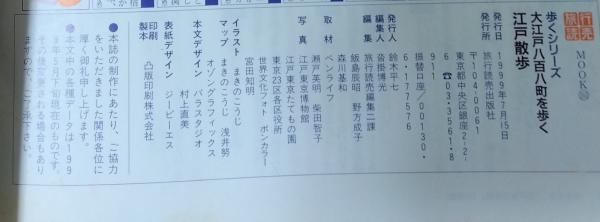 旅行読売
MOOK
歩くシリーズ
大江戸八百八町を歩く
江戸散歩
発行日 1999年7月15日
発行所 旅行読売出版社
〒104-0061
東京都中央区銀座2-2-
6 ☎03・3561・8
振替口座/00130・
6・177576
発行人 鈴木平七
編集人 沓掛博光
編集 旅行読売編集二課
飯島辰昭 野方成子
取材 森川基和
ペンライフ
写真 瀬戸英明 柴田智子
江戸東京博物館
江戸東京たてもの園
東京23区各区役所
世界文化フォト ボンカラー
宮田知明
イラスト まきのこうじ
マップ まきのこうじ 浅井努
オゾングラフィックス
本文デザイン パラスタジオ
村上直美
表紙デザイン ジーピーエス
印刷 製本 凸版印刷株式会社
●本誌の制作にあたり、ご協力
をいただきました関係各位に
厚く御礼申し上げます。
●本文中の各種データは199